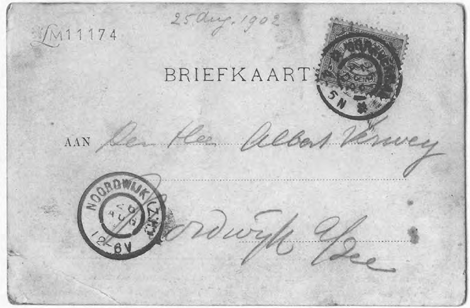 LM11174
25 Aug. 1902
BRIEFKAART
5N
AAN Den Heer Albert Verwey
Noordwijk a/Zee
NOORDWIJK (Z.H.)
26
AUG
12-6V